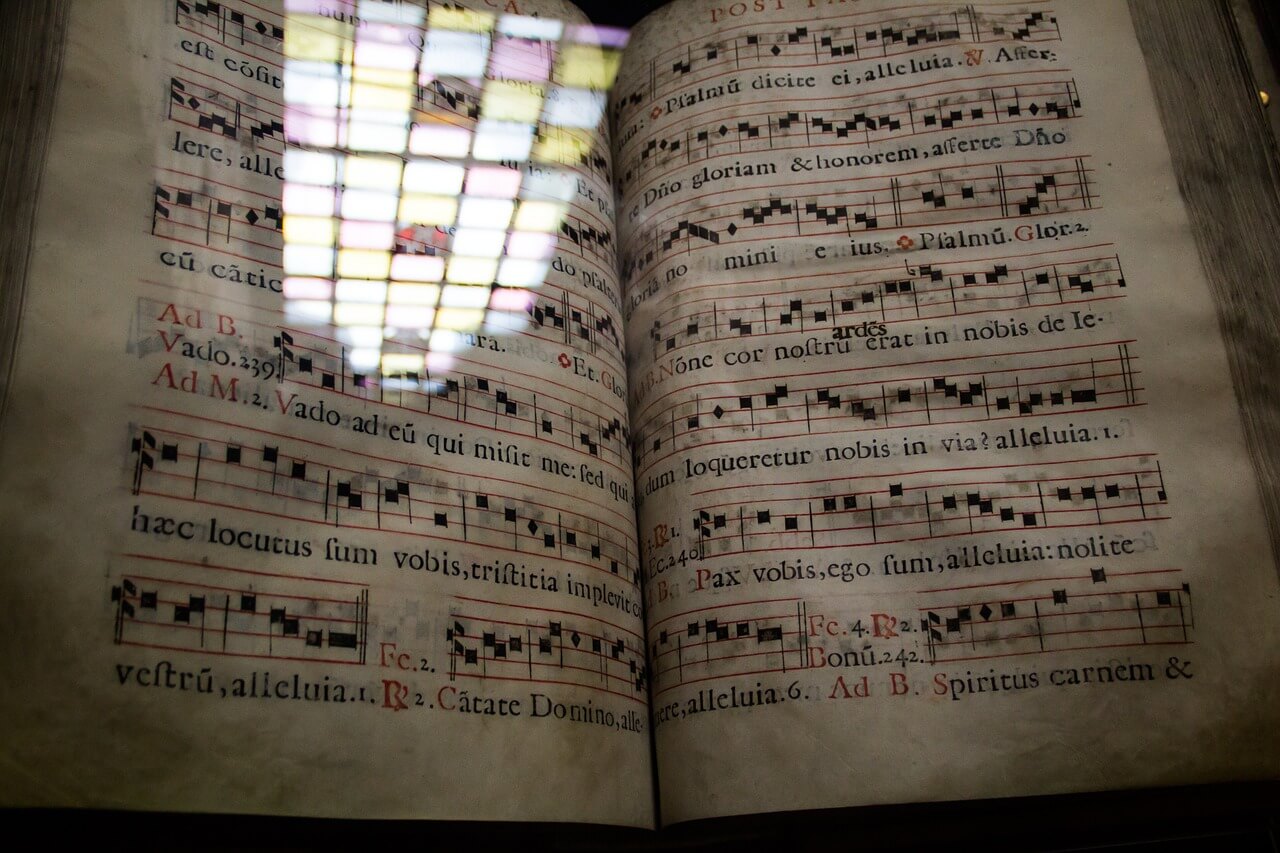 num
est cõsit
lere, alle
cũ cãtic
do psal
Ad B.
Vado.239.
ara. Et. Glo
Ad M. 2. Vado ad eũ qui misit me: sed qui
hæc locutus sum vobis, tristitia implevit
vestrũ, alleluia. 1. ℟ 2. Cãtate Domino, alle-
Fe. 2.
POST
Psalmũ dicite ei, alleluia. ℣. Affer-
te Dño gloriam & honorem, afferte Dño
gloriã no mini e ius. Psalmũ. Glor. 2.
B. Nóne cor nostrũ ardẽs erat in nobis de Ie-
dum loqueretur nobis in via? alleluia. 1.
℟ 1.
Ec. 240.
B. Pax vobis, ego sum, alleluia: nolite
Fe. 4. ℟ 2.
Bonũ. 242.
ere, alleluia. 6. Ad B. Spiritus carnem &